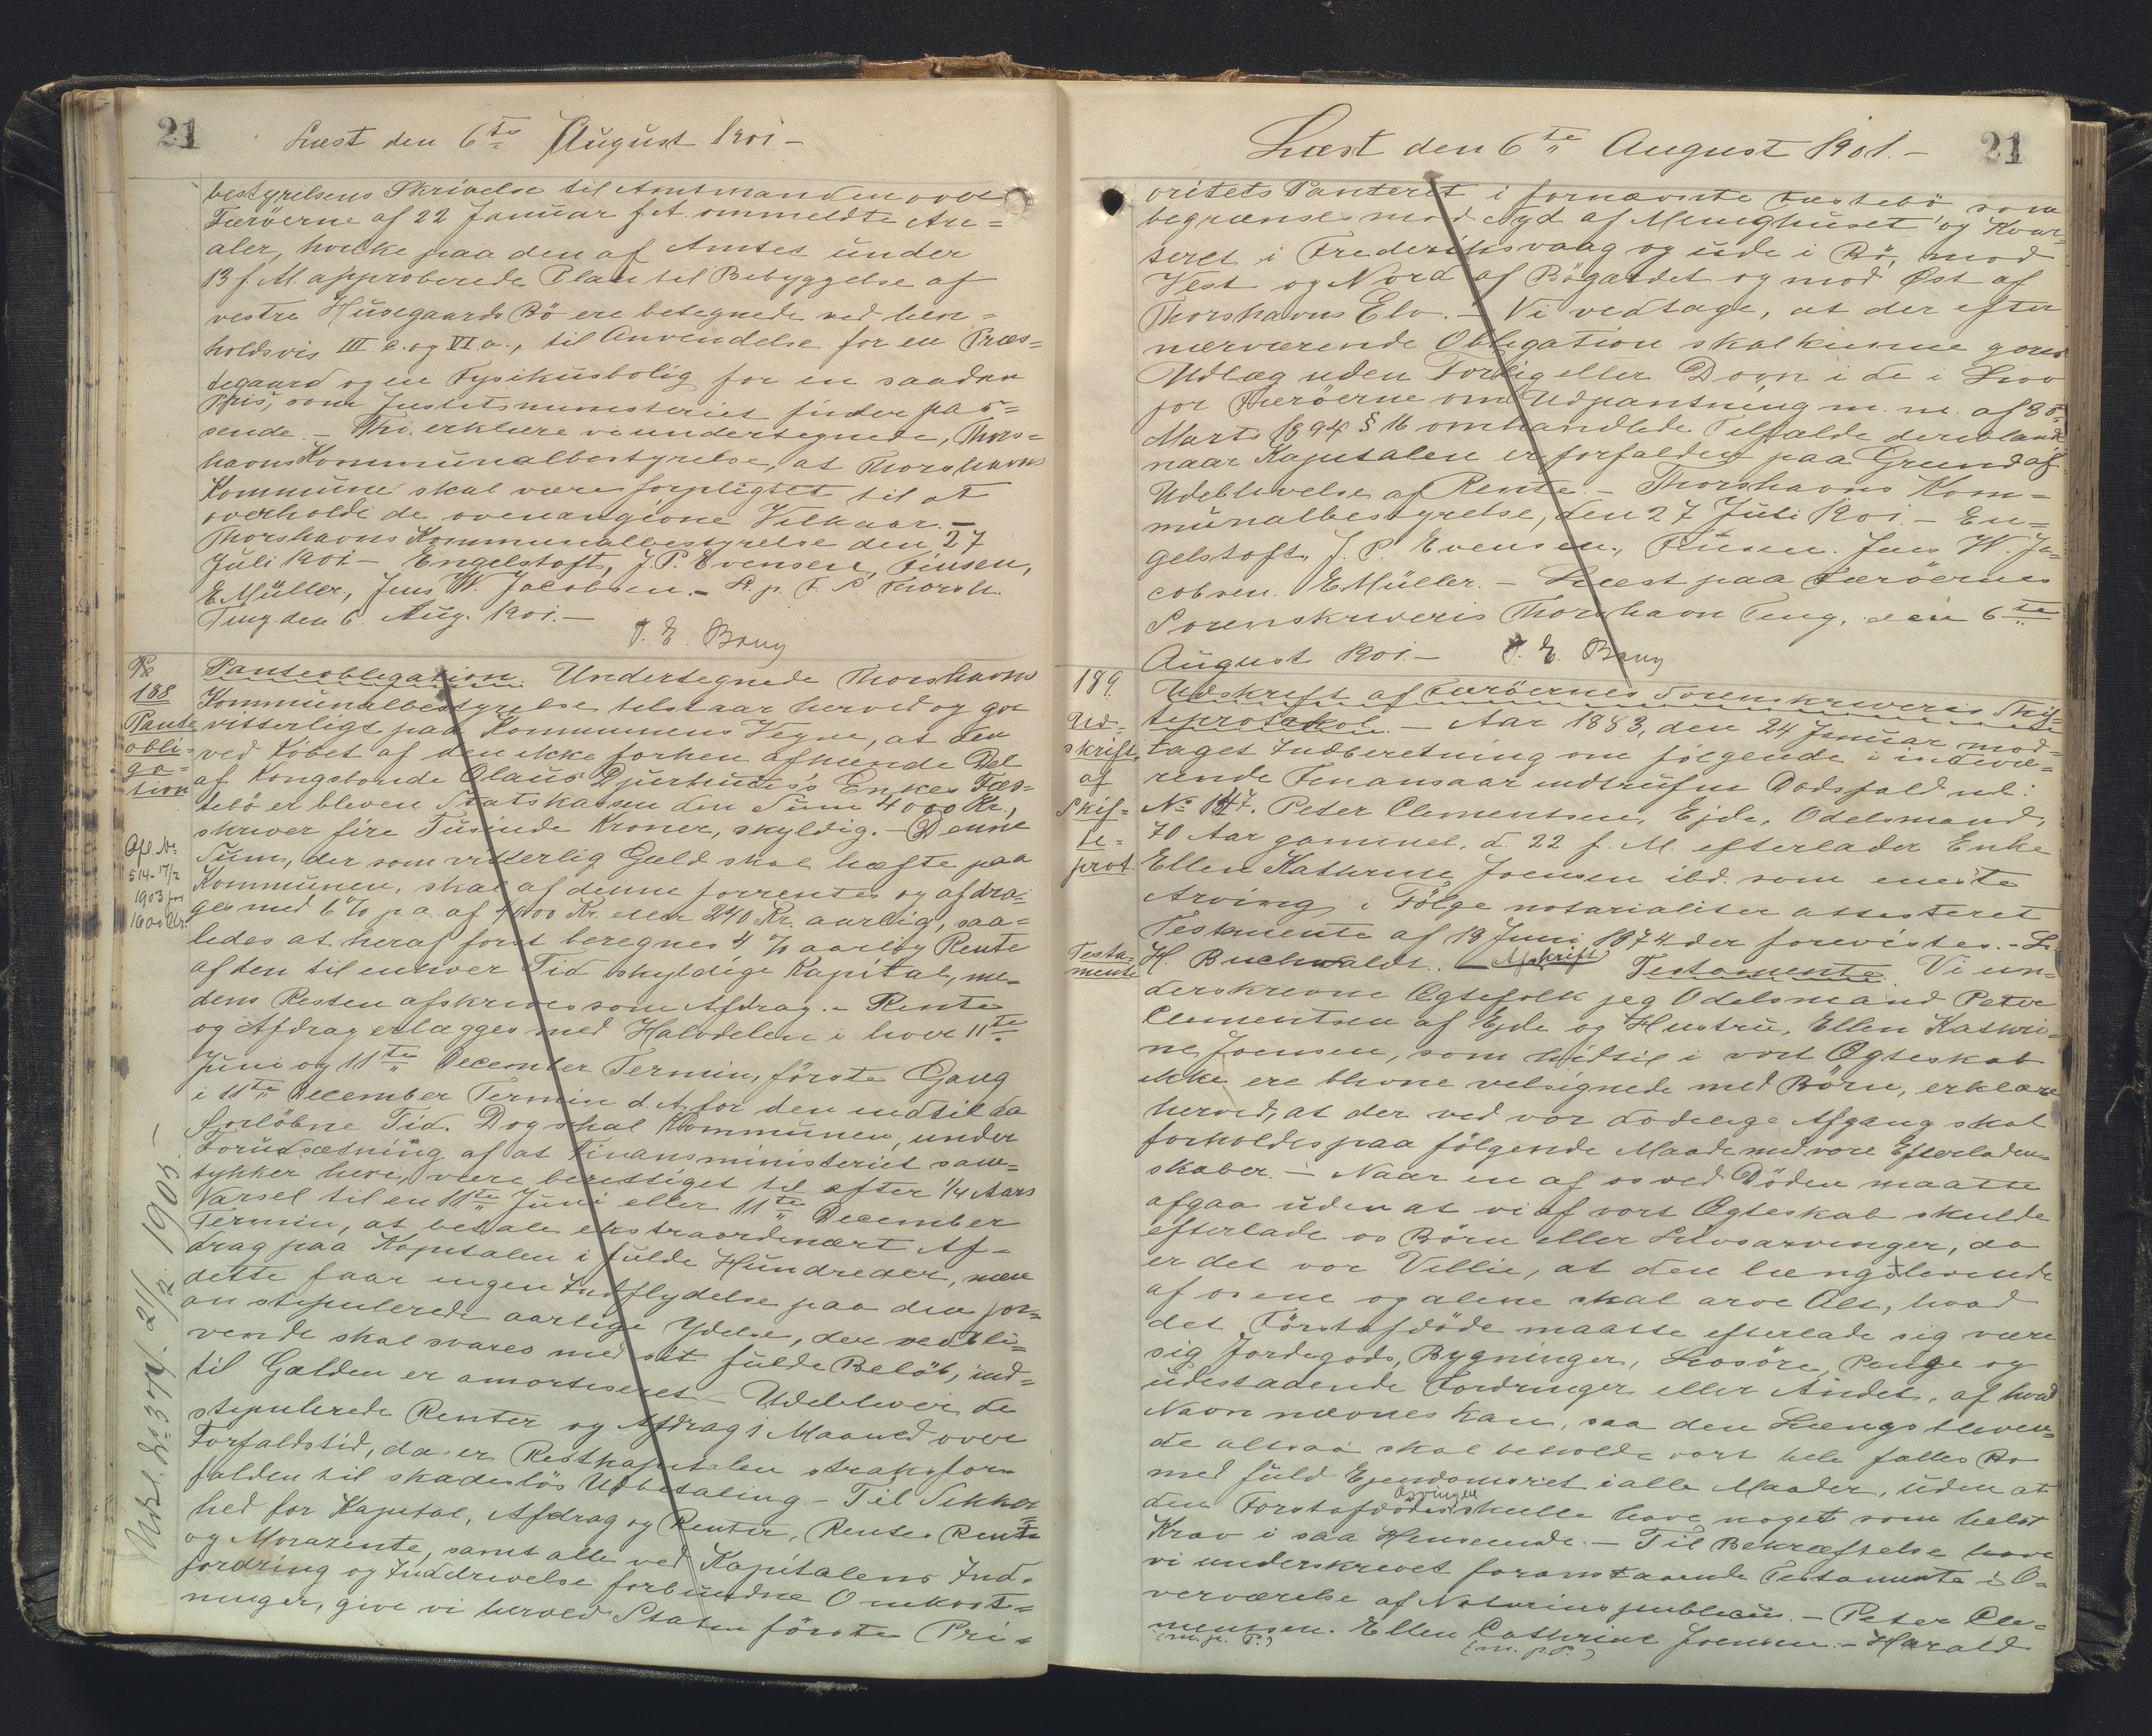 21
Læst den 6te August 1901.-
bestyrelsens Skrivelse til Amtmanden over
Færöerne af 22 Januar f. A. ommeldte Are=
aler, hvilke paa den af Amtet under
13 f. M. approberede Plan til Bebyggelse af
vestre Husegaards Bö ere betegnede ved hen=
holdsvis III c. og VI a., til Anvendelse for en Præs=
tegaard og en Fysikusbolig for en saadan
Pris, som Justitsministeriet finder pas=
sende. - Thi erklære vi undertegnede, Thors=
havns Kommunalbestyrelse, at Thorshavns
Kommune skal være forpligtet til at
overholde de ovenangivne Vilkaar. -
Thorshavns Kommunalbestyrelse den 27
Juli 1901 - Engelstoft, J. P. Evensen, Finsen,
E. Müller, Jens W. Jacobsen. - L. p. F. S. Thorsh.
Ting den 6. Aug. 1901. -
188
Pante
obli=
ga=
tion
Afl. No.
514 - 17/2
1903 for
1600 Kr.
Udsl. No. 374. 21/2 1905. -
Panteobligation. Undertegnede Thorshavns
Kommunalbestyrelse tilstaar herved og gör
vitterligt paa Kommunens Vegne, at den
ved Köbet af den ikke forhen afhænde Del
af Kongsbonde Olaus Djurhuus's Enkes Fæs=
tebö er bleven Statskassen den Sum 4000 Kr.,
skriver fire Tusinde Kroner, skyldig. - Denne
Sum, der som vitterlig Gæld skal hæfte paa
Kommunen, skal af denne forrentes og afdra=
ges med 6 % p. a. af 4000 Kr. eller 240 Kr. aarlig, saa=
ledes at heraf först beregnes 4 % aarlig Rente
af den til enhver Tid skyldige Kapital, me=
dens Resten afskrives som Afdrag. - Rente
og Afdrag erlægges med Halvdelen i hver 11te
Juni og 11te December Termin, förste Gang
i 11te December Termin d. A. for den indtil da
forlöbne Tid. Dog skal Kommunen, under
Forudsætning af at Finansministeriet sam=
tykker heri, være berettiget til efter 1/4 Aars
Varsel til en 11te Juni eller 11te December
Termin, at betale ekstraordinært Af=
drag paa Kapitalen i fulde Hundreder, men
dette faar ingen Indflydelse paa den for=
an stipulerede aarlige Ydelse, der vedbli=
vende skal svares med sit fulde Belöb, ind=
til Gælden er amortiseret. - Udebliver de
stipulerede Renter og Afdrag 1 Maaned over
Forfaldstid, da er Restkapitalen straks for=
falden til skadeslös Udbetaling. - Til Sikker=
hed for Kapital, Afdrag og Renter, Rentes Rente
og Morarente, samt alle ved Kapitalens Ind=
fordring og Inddrivelse forbundne Omkost=
ninger, give vi herved Staten förste Pri=
21
Læst den 6te August 1901. -
oritets Panteret i fornævnte Fæstebö, som
begrænses mod Syd af Menighuset og Kvar=
teret i Frederiksvaag og ude i Bö, mod
Vest og Nord af Bögærdet og mod Øst af
Thorshavns Elv. - Vi vedtage, at der efter
nærværende Obligation skal kunne göres
Udlæg uden Forlig eller Dom i de i Lov
for Færöerne om Udpantning m. m. af 30
Marts 1894 § 16 omhandlede Tilfælde deriblandt
naar Kapitalen er forfalden paa Grund af
Udeblivelse af Rente. - Thorshavns Kom=
munalbestyrelse, den 27 Juli 1901. - En=
gelstoft, J. P. Evensen, Finsen. Jens W. Ja=
cobsen. E. Müller. - Læst paa Færöernes
Sorenskriveris Thorshavn Ting, den 6te
August 1901. -
189.
Ud=
skrift
af
Skif=
te=
prot.
Testa=
mente
Udskrift af Færöernes Sorenskriveris Skif=
teprotokol. - Aar 1883, den 24 Januar mod=
taget Indberetning om fölgende i indevæ=
rende Finansaar indtrufne Dödsfald ud:
No 147. Peter Clementsen, Ejde, Odelsmand,
70 Aar gammel, d. 22 f. M. efterlader Enke
Ellen Kathrine Joensen ibd. som eneste
Arving i Fölge notarialiter attesteret
Testamente af 19 Juni 1874 der forevistes. - L.
H. Buchwaldt. - Afskrift Testamente. Vi un=
derskrevne Ægtefolk jeg Odelsmand Peter
Clementsen af Ejde og Hustru, Ellen Kathri=
ne Joensen, som hidtil i vort Ægteskab
ikke ere blevne velsignede med Börn, erklære
herved, at der ved vor dödelige Afgang skal
forholdes paa fölgende Maade med vore Efterladen=
skaber. - Naar en af os ved Döden maatte
afgaa uden at vi af vort Ægteskab skulde
efterlade os Börn eller Livsarvinger, da
er det vor Villie, at den længstlevende
af os ene og alene skal arve Alt, hvad
det Förstafdöde maatte efterlade sig være
sig Jordegods, Bygninger, Lösöre, Penge og
udestaaende Fordringer eller Andet, af hvad
Navn nævnes kan, saa den Længstleven=
de altsaa skal beholde vort hele fælles Bo
med fuld Ejendomsret i alle Maader, uden at
den Förstafdödes Arvinger skulle have noget som helst
Krav i saa Henseende. - Til Bekræftelse have
vi underskrevet foranstaaende Testamente i O=
verværelse af Notarius publicus. - Peter Cle=
mensen. Ellen Cathrine Joensen. - Harald
(m. p. P.) (m. p. P.)